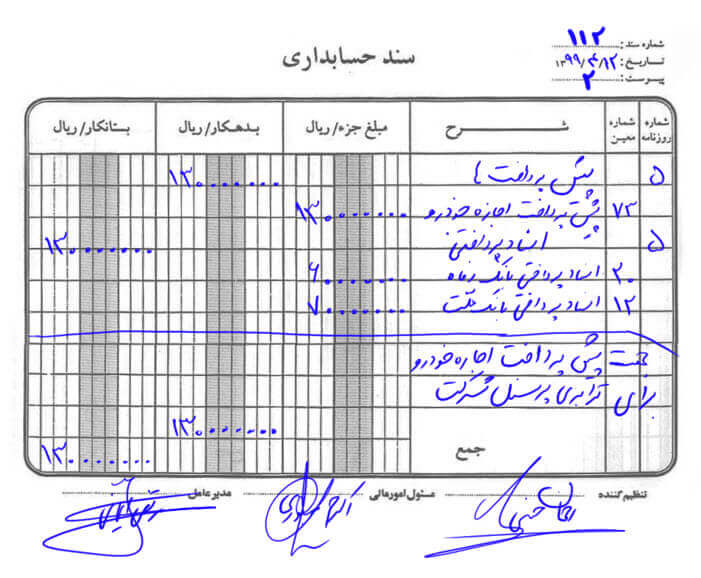 سند حسابداری
شماره سند: ۱۱۲
تاریخ: ۱۳۹۹/۴/۱۲
پیوست: ۲
شماره روزنامه شماره معین شرح مبلغ جزء/ ریال بدهکار/ ریال بستانکار/ ریال
۵ پیش پرداخت ها ۱۳۰۰۰۰۰۰۰
۷۳ پیش پرداخت اجاره خودرو ۱۳۰۰۰۰۰۰۰
۵ اسناد پرداختنی ۱۳۰۰۰۰۰۰۰
۲۰ اسناد پرداختنی بانک رفاه ۶۰۰۰۰۰۰۰
۱۲ اسناد پرداختنی بانک ملت ۷۰۰۰۰۰۰۰
بابت پیش پرداخت اجاره خودرو
برای ترابری پرسنل شرکت
جمع ۱۳۰۰۰۰۰۰۰ ۱۳۰۰۰۰۰۰۰
تنظیم کننده مسئول امور مالی مدیر عامل